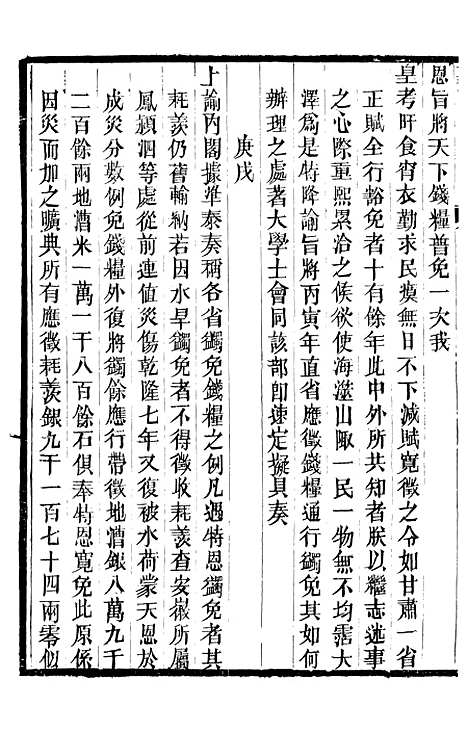 恩旨將天下錢糧普免一次我
皇考旰食宵衣勤求民瘼無日不下減賦寬徵之令如甘肅一省
正賦全行豁免者十有餘年此中外所共知者朕以繼志述事
之心際重熙累洽之候欲使海澨山陬一民一物無不均霑大
澤爲是特降諭旨將丙寅年直省應徵錢糧通行蠲免其如何
辦理之處著大學士會同該部卽速定擬具奏
庚戌
上諭內閣據準泰奏稱各省蠲免錢糧之例凡遇特恩蠲免者其
耗羨仍舊輸納若因水旱蠲免者不得徵收耗羨查安徽所屬
鳳潁泗等處從前連值災傷乾隆七年又復被水荷蒙天恩於
成災分數例免錢糧外復將蠲餘應行帶徵地漕銀八萬九千
二百餘兩地漕米一萬一千八百餘石俱奉特恩寬免此原係
因災而加之曠典所有應徵耗羨銀九千一百七十四兩零似